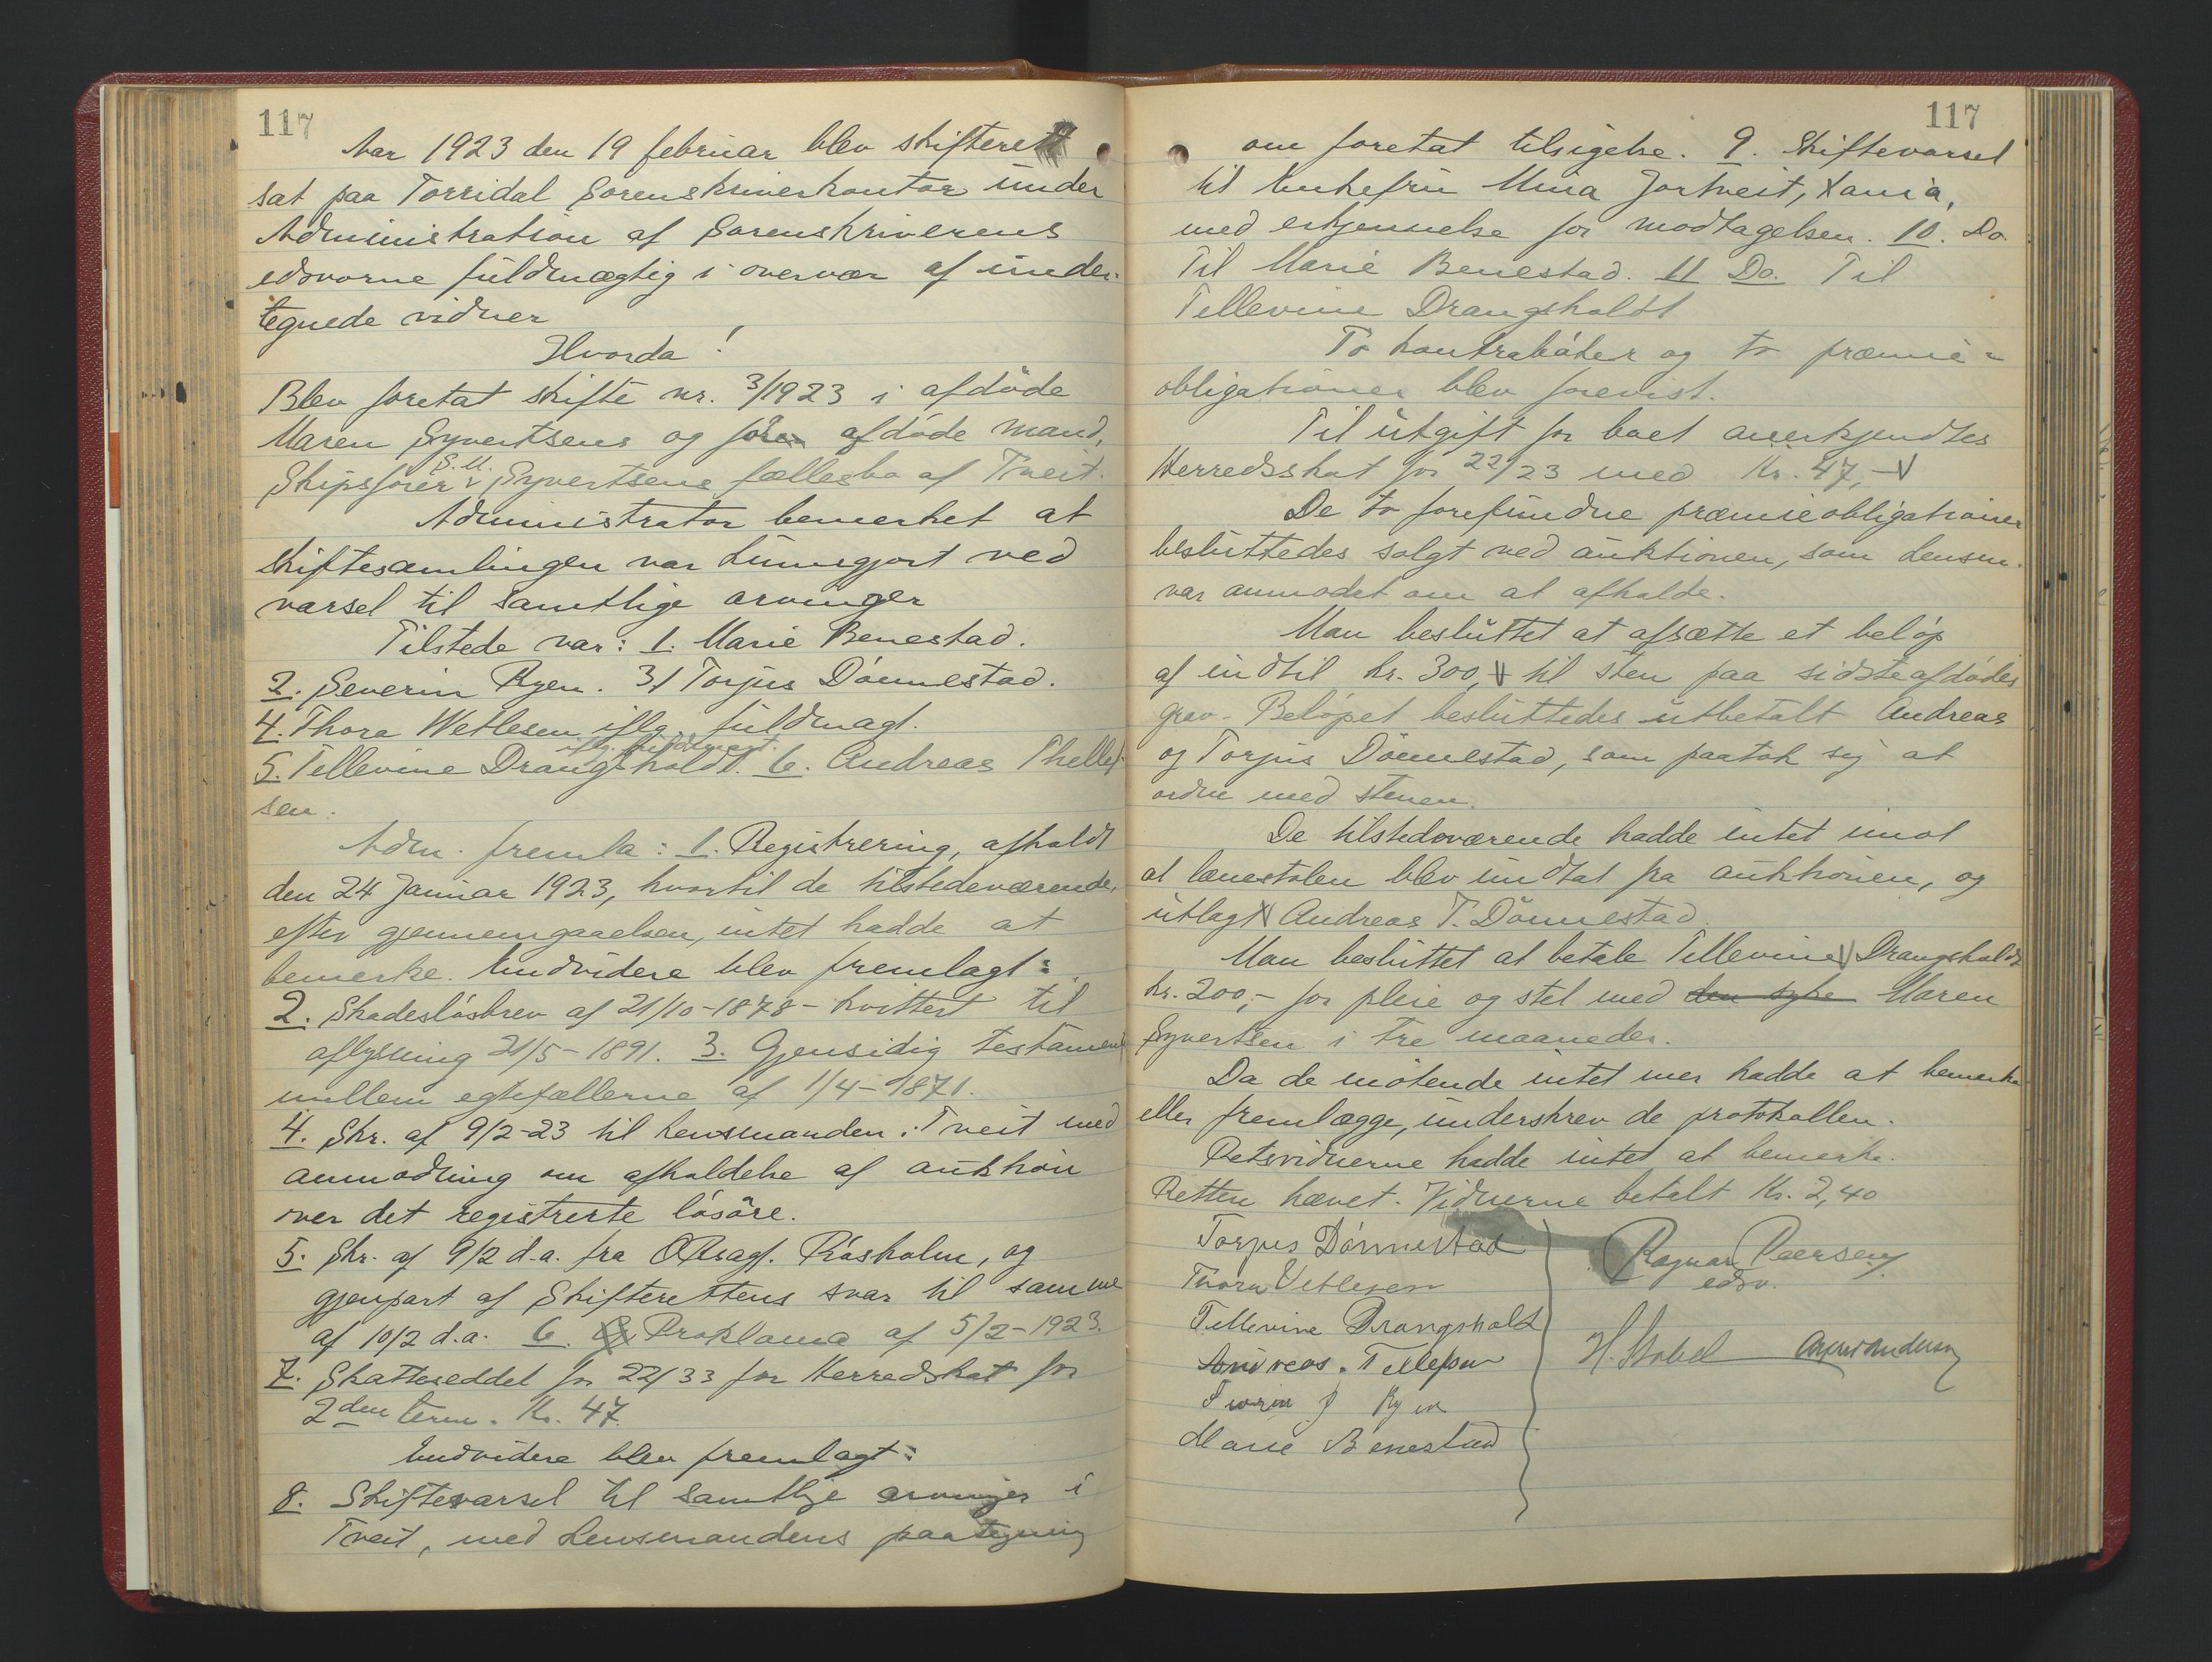 117
Aar 1923 den 19 februar blev skifterett
sat paa Torridal Sorenskriverkontor under
Administration af Sorenskriverens
edsvorne fuldmægtig i overvær af under-
tegnede vidner
Hvorda!
Blev foretat skifte nr. 3/1923 i afdöde
Maren Syvertsens og före afdöde mand,
S. M.
Skipsförer Syvertsens fællesbo af Tveit.
Administrator bemerket at
skiftesamlingen var kunngjort ved
varsel til samtlige arvinger
Tilstede var: 1. Marie Benestad.
2. Severin Ryen. 3/ Torjus Dönnestad.
4. Thora Wetlesen iflg. fuldmagt.
iflg. fuldmagt.
5. Tellevine Drangsholdt. 6. Andreas Thellef-
sen.
Adm. fremla: 1. Registrering, afholdt
den 24 Januar 1923, hvortil de tilstedeværende,
efter gjennemgaaelsen, intet hadde at
bemerke. Endvidere blev fremlagt:
2. Skadeslösbrev af 21/10-1878 - kvittert til
aflysning 21/5-1891. 3. Gjensidig testament
mellem egtefællerne af 1/4-1871.
4. Skr. af 9/2-23 til Lensmanden i Tveit med
anmodning om afholdelse af auktion
over det registrerte lösöre.
5. Skr. af 9/2 d.a. fra ORsagf. Rosholm, og
gjenpart af Skifterettens svar til samme
af 10/2 d.a. 6. Proklama af 5/2-1923.
7. Skatteseddel for 22/33 for Herredskat for
2den term. Kr. 47.
Endvidere blev fremlagt:
8. Skiftevarsel til samtlige arvinger i
Tveit, med Lensmandens paategning
117
om foretat tilsigelse. 9. Skiftevarsel
til Enkefru Mina Jortveit, Xania,
med erkjennelse for modtagelsen. 10. Do.
Til Marie Benestad. 11 Do. Til
Tellevine Drangsholdt
To kontraböker og to præmie-
obligationer blev forevist.
Til utgift for boet anerkjendtes
Herredsskat for 22/23 med Kr. 47,-
De to forefundne præmieobligationer
besluttedes solgt ved auktionen, som Lensm.
var anmodet om at afholde.
Man besluttet at afsætte et belöp
af indtil kr. 300,- til sten paa sidsteafdödes
grav. Belöpet besluttedes utbetalt Andreas
og Torjus Dönnestad, som paatok sig at
ordne med stenen.
De tilstedeværende hadde intet imot
at lænestolen blev undtat fra auktionen, og
utlagt Andreas T. Dönnestad.
Man besluttet at betale Tellevine Drangsholdt
kr. 200,- for pleie og stel med den syke Maren
Syvertsen i tre maaneder.
Da de mötende intet mer hadde at bemerke
eller fremlægge, underskrev de protokollen.
Retsvidnerne hadde intet at bemerke.
Retten hævet. Vidnerne betalt Kr. 2,40
Torjus Dönnestad
Ragnar Paersen
edsv.
Thora Vetlesen
Tellevine Drangsholt
Andreas. Tellefsen
H. Stabel
Severin J Ryen
Marie Benestad